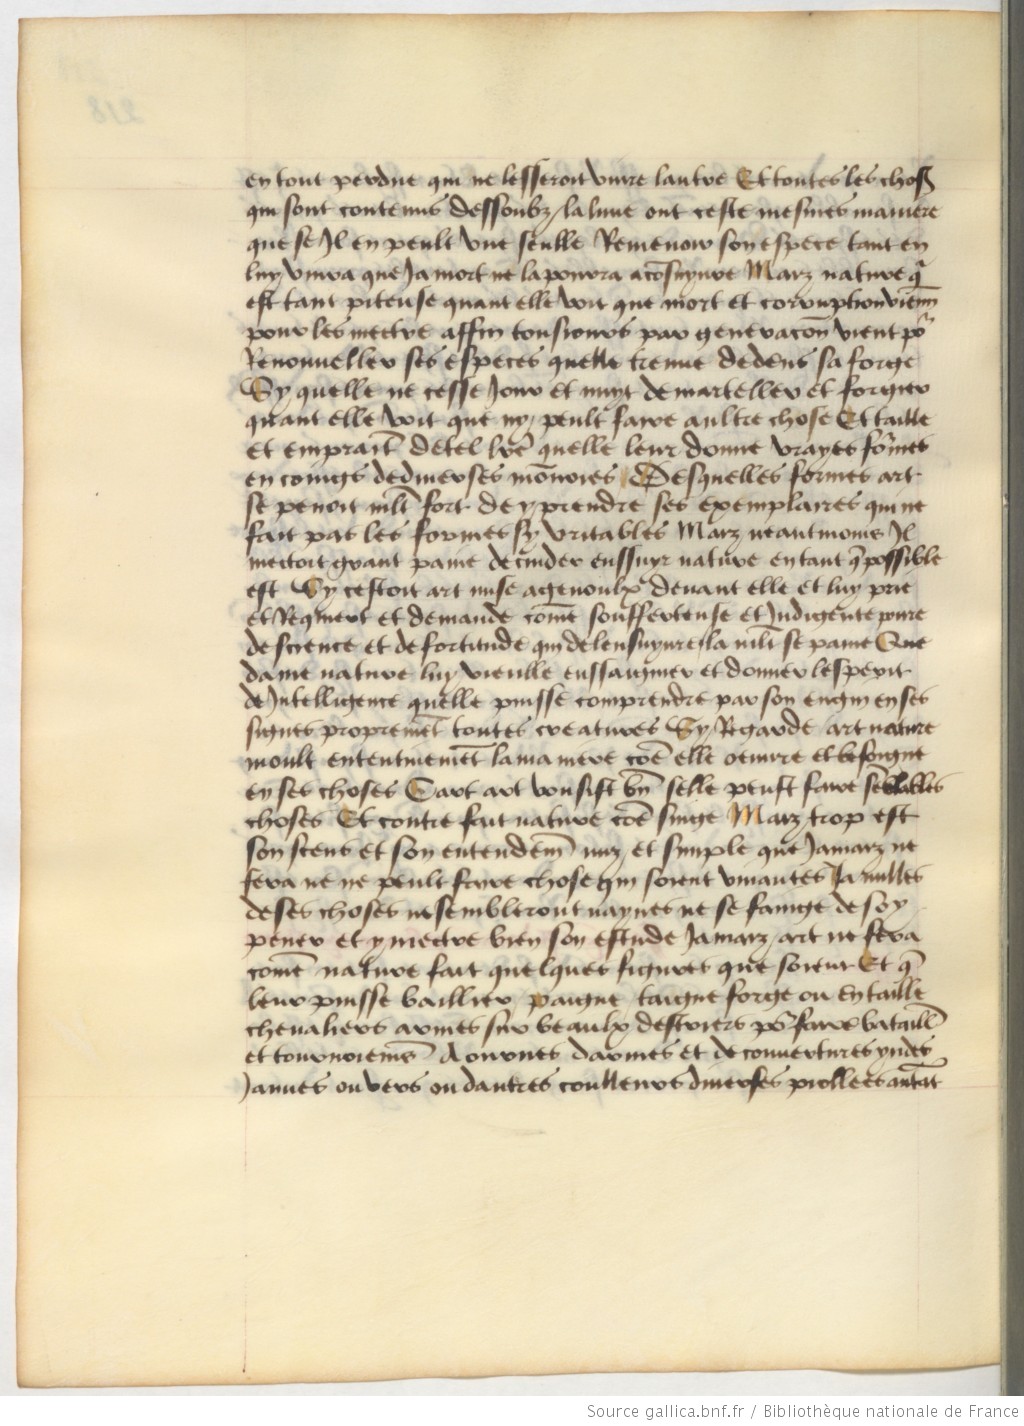 en tout perdue qui ne lesseroit vivre lautre Et toutes les choses
qui sont contenus dessoubz la lune ont ceste mesmes maniere
que se Il en peult vne seulle Remenoir son espece tant en
luy viura que Ja mort ne la pourra acosuyure Marz nature q
est tant piteuse quant elle voit que mort et corruption viennt
pour les mectre affin tousiours par generacon vient po
Renouueller ses especes quelle treuue dedens sa forge
Sy quelle ne cesse Jour et nuyt de marteller et forgier
quant elle voit que ny peult faire aultre chose Et taille
et empraint de tel lre quelle leur donne vrayes formes
en coings de diuerses monnoies Desquelles formes art
se penoit mlt fort de y prendre ses exemplaires qui ne
fait pas les formes sy veritables Marz neantmoins Il
mectoit grant paine de cuider enssuyr nature en tant q possible
est Sy cestoit art mise a genoulx deuant elle et luy prie
et Requiert et demande come soufferteuse et Indigente poure
de science et de fortitude qui de lensuyure la mlt se paine Que
dame nature luy vieulle enssaigner et donner lesperit
de Intelligence quelle puisse comprendre par son engin en ses
signes propremet toutes creatures Sy Regarde art nature
moult ententiuemet la maniere coe elle oeuure et besongne
en ses choses Cart art vousist bn selle peust faire seblables
choses Et contre fait nature coe singe Marz trop est
son scens et son entendem nuz et simple que Jamarz ne
fera ne ne peult faire chose qui soient viuantes Ja nulles
de ses choses ne sembleront nayues ne se fainge de soy
pener et y mectre bien son estude Jamarz art ne fera
come nature fait quelques figures que soient Et q
leur puisse baillier paigne taigne forge ou entaille
cheualiers armes sur beaulx destriers po faire bataill
et tournoiems Aournes darmes et de couuertures yndes
Jaunes ou vers ou dautres coulleurs diuerses piollees autat
Source gallica.bnf.fr / Bibliothèque nationale de France